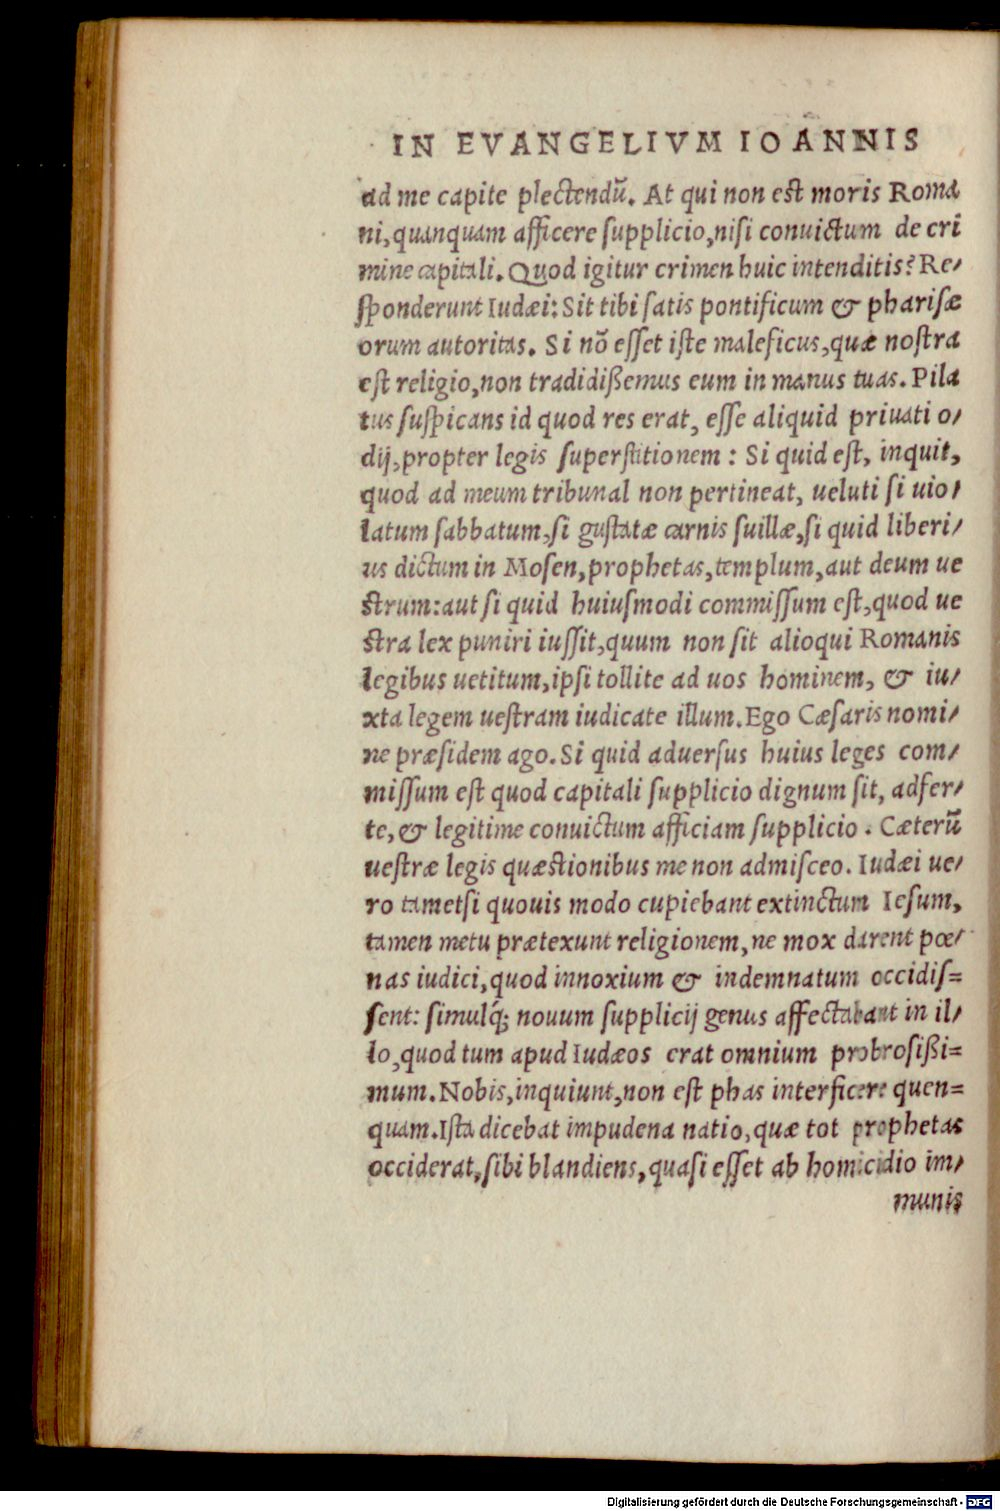 IN EVANGELIVM IOANNIS
ad me capite plectendū. At qui non est moris Roma
ni, quanquam afficere supplicio, nisi conuictum de cri
mine capitali. Quod igitur crimen huic intenditis? Re/
sponderunt Iudæi: Sit tibi satis pontificum & pharisæ
orum autoritas. Si nō esset iste maleficus, quæ nostra
est religio, non tradidißemus eum in manus tuas. Pila
tus suspicans id quod res erat, esse aliquid priuati o/
dij, propter legis superstitionem: Si quid est, inquit,
quod ad meum tribunal non pertineat, ueluti si uio/
latum sabbatum, si gustatæ carnis suillæ, si quid liberi/
us dictum in Mosen, prophetas, templum, aut deum ue
strum: aut si quid huiusmodi commissum est, quod ue
stra lex puniri iussit, quum non sit alioqui Romanis
legibus uetitum, ipsi tollite ad uos hominem, & iu/
xta legem uestram iudicate illum. Ego Cæsaris nomi/
ne præsidem ago. Si quid aduersus huius leges com/
missum est quod capitali supplicio dignum sit, adfer/
te, & legitime conuictum afficiam supplicio. Cæterū
uestræ legis quæstionibus me non admisceo. Iudæi ue/
ro tametsi quouis modo cupiebant extinctum Iesum,
tamen metu prætexunt religionem, ne mox darent pœ/
nas iudici, quod innoxium & indemnatum occidis=
sent: simulq́; nouum supplicij genus affectabant in il/
lo, quod tum apud Iudæos erat omnium probrosißi=
mum. Nobis, inquiunt, non est phas interficere quen=
quam. Ista dicebat impudens natio, quæ tot prophetas
occiderat, sibi blandiens, quasi esset ab homicidio im/
munis
Digitalisierung gefördert durch die Deutsche Forschungsgemeinschaft - DFG